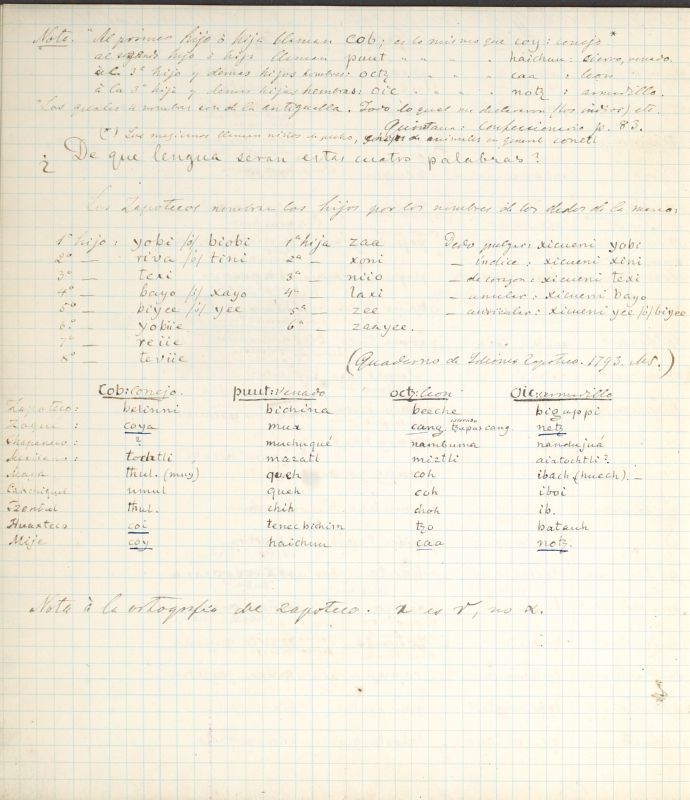 Nota. "Al primer hijo ò hija llaman cob; es lo mismo que coy: conejo *
al segundo hijo ò hija llaman puut " " " " haichuu: ciervo, venado.
à la 3ª hijo y demas hijos hombres: octz . . . . caa : leon
à la 3ª hija y demas hijas hembras: oic . . . . notz : armadillo.
"Los quales nombres son de la antiguella. Todo lo qual me declararon (los indios) etc.
Quintana: Confessionario p. 83.
(*) Los mejicanos llaman niños de pecho, de animales en general conetl
¿ De que lengua seran estas cuatro palabras?
Los Zapotecos nombran los hijos por los nombres de los dedos de la mano:
1º hijo: yobi /ó/ biobi 1ª hija zaa Dedo pulgar: xicueni yobi
2º — riva /ó/ tini 2ª — xoni — indice: xicueni xini
3º — texi 3ª — niio — de corazon: xicueni texi
4º — bayo /ó/ xayo 4ª — laxi — anular: xicueni bayo
5º — biyee /ó/ yee 5ª — zee — auricular: xicueni yee /ó/ biyee
6º — yobiie 6ª — zaayee.
7º — reiie
8º — teviie (Quaderno de Idioma Zapoteco. 1793. MS.)
Cob: Conejo. puut: Venado octz: leon oic: armadillo
Zapoteco: belinni bichina beeche biguppi
Zoque: coya mux cang. cang netz
Chapaneco: ? muchuqué nambuma nandujuá
Mexicano: tochtli mazatl miztli aiotochtli?
Maya thul. (muy) queh coh ibach (huech). —
Cakchiquel umul queh coh iboi
Tzental thul. chih choh ib.
Huaxteco coi tenec bichim tzo batauh
Mije coy haichuu caa notz.
Nota à la ortografia del zapoteco. x es r, no x.